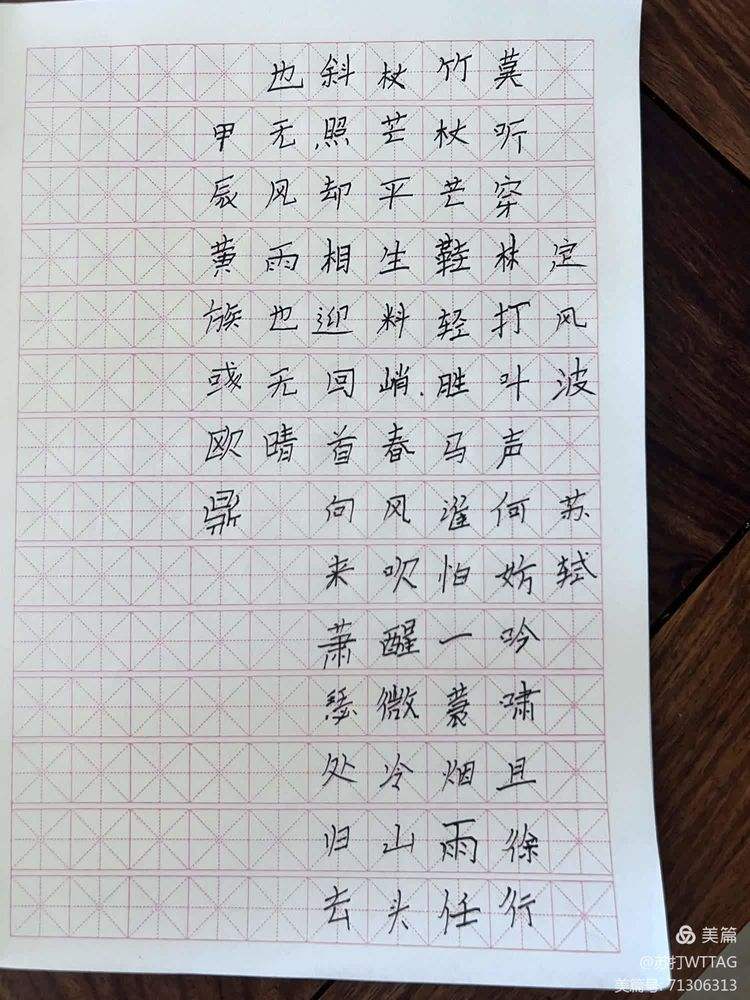 定风波 苏轼
莫听穿林打叶声何妨吟啸且徐行
竹杖芒鞋轻胜马谁怕一蓑烟雨任
杖芒平生料峭.春风吹醒微冷山头
斜照却相迎回首向来萧瑟处归去
也无风雨也无晴
甲辰黄族彧欧鼎
美篇
@苏打WTTAG
美篇号: 71306313